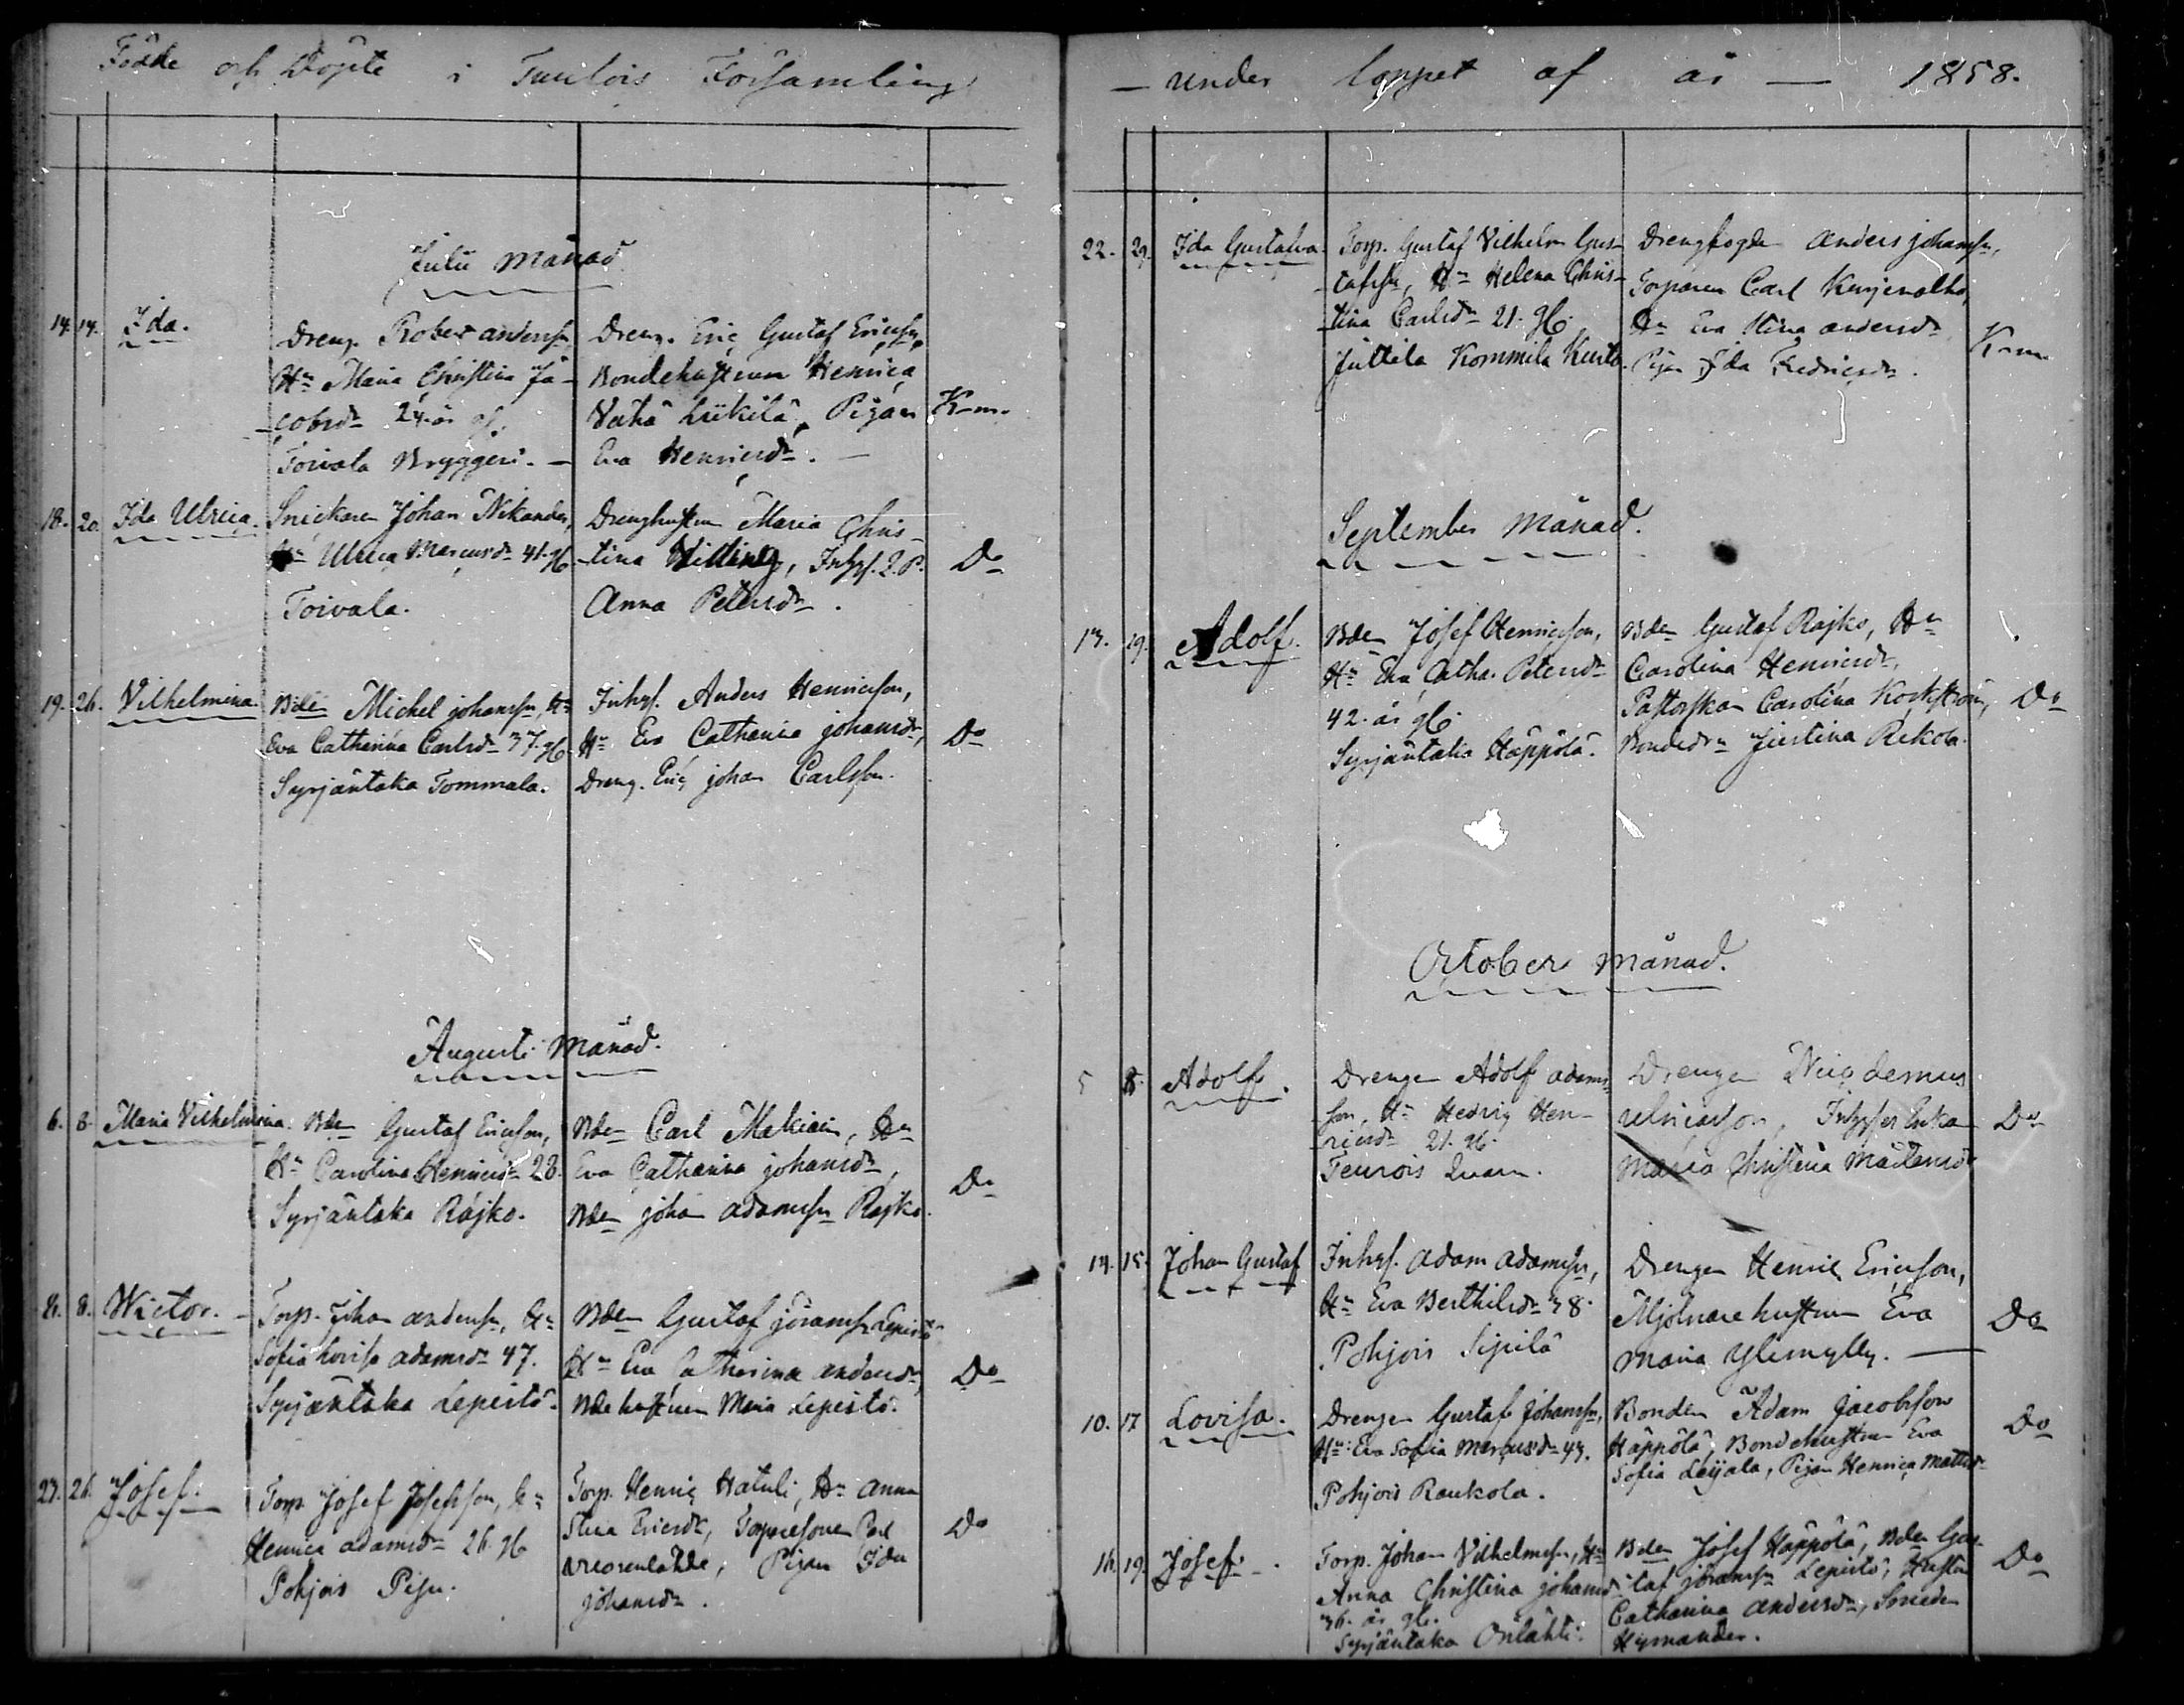 Födde och Döpte i Tuulois Församling
Julii Månad.
14. 14. Ida.
Dreng. Robert Anderss:n,
H:n Maria Christina Ja-
cobsd:r 24 år gl.
Toivala Bryggeri. —
Dreng. Eric Gustaf Ericss:n,
Bondehustrun Henrica
Vähä Liikilä, Pigan
Eva Henricsd:r. —
K-m.
18. 20. Ida Ulrica.
Snickaren Johan Nikander,
H:n Ulrica Marcusd:r 41. gl.
Toivala.
Drenghustrun Maria Chris-
tina Villing, Inhys. E. P.
Anna Petersd:r.
D:o
19. 26. Vilhelmina.
Bden Michel Johanss:n, H:n
Eva Catharina Carlsd:r 37. gl.
Syrjäntaka Tommala.
Inhys. Anders Henricsson,
H:n Eva Catharina Johansd:r,
Dreng. Eric Johan Carlsson.
D:o
Augusti Månad.
6. 8. Maria Vilhelmina.
Bden Gustaf Ericsson,
H:n Carolina Henricsd:r 28.
Syrjäntaka Rajko.
Bden Carl , H:n
Eva Catharina Johansd:r,
Bden Johan Adamss:n Rajko.
D:o
8. 8. Wictor.
Torp. Johan Anderss:n, H:n
Sofia Lovisa Adamsd:r 47.
Syrjäntaka Lepistö.
Bden Gustaf Göranss:n Lepistö
H:n Eva Catharina Andersd:r,
Bdehustrun Maria Lepistö.
D:o
23. 26. Josef.
Torp. Josef Josefsson, H:n
Henrica Adamsd:r 26. gl.
Pohjois Pisu.
Torp. Henric Hatuli, H:n Anna
Stina Ericsd:r, Torparesonen Carl
Vuorenlähde, Pigan Ida
Johansd:r.
D:o
— under loppet af år — 1858.
22. 29. Ida Gustafva.
Torp. Gustaf Vilhelm Gus-
tafss:n, H:n Helena Chris-
tina Carlsd:r 21. gl.
Juttila Kommila
Drengfogden Anders Johanss:n,
Torparen Carl
H:n Eva Stina Andersd:r
Pigan Ida Fredricsd:r.
K-m
September Månad.
13. 19. Adolf.
Bden Josef Henricsson,
H:n Eva Catha. Petersd:r
42. år gl.
Syrjäntaka Häppölä.
Bden Gustaf Rajko, H:n
Carolina Henricsd:r,
Pastorskan Carolina Kockström,
Bondedr:n Justina Rekola.
D:o
October Månad.
5 8. Adolf.
Drengen Adolf Adams-
son, H:n Hedvig Hen-
ricsd:r 21. gl.
Teurois Quarn.
Drengen Nicodemus
Ulricsson, Inhyses Enkan
Maria Christina Mårtensd:r
D:o
14. 15. Johan Gustaf
Inhys. Adam Adamss:n,
H:n Eva Berthilsd:r 38.
Pohjois Sipilä
Drengen Henric Ericsson,
Mjölnarehustrun Eva
Maria Ylimylly. —
D:o
10. 17 Lovisa.
Drengen Gustaf Johanss:n,
H:n: Eva Sofia Marcusd:r 43.
Pohjois Raukola.
Bonden Adam Jacobsson
Häppölä, Bondehustrun Eva
Sofia Leijala, Pigan Henrica Mattsd:r
D:o
16. 19. Josef.
Torp. Johan Vilhelmss:n, H:n
Anna Christina Johansd:r
36. år gl.
Syrjäntaka Orilahti.
Bden Josef Häppölä, Bden Gus-
taf Göranss:n Lepistö, Hustru
Catharina Andersd:r, Smeden
Hymander.
D:o